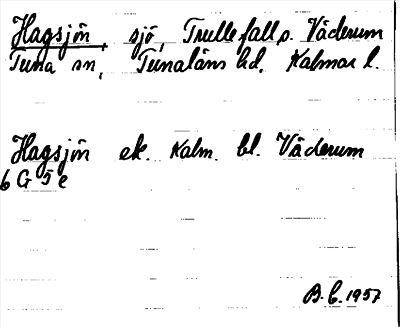 Hagsjön, sjö, Trullefall o. Väderum
Tuna sn, Tunaläns hd. Kalmar l.
Hagsjön ek. Kalm. bl. Väderum
6 G 5 e
B.E. 1957